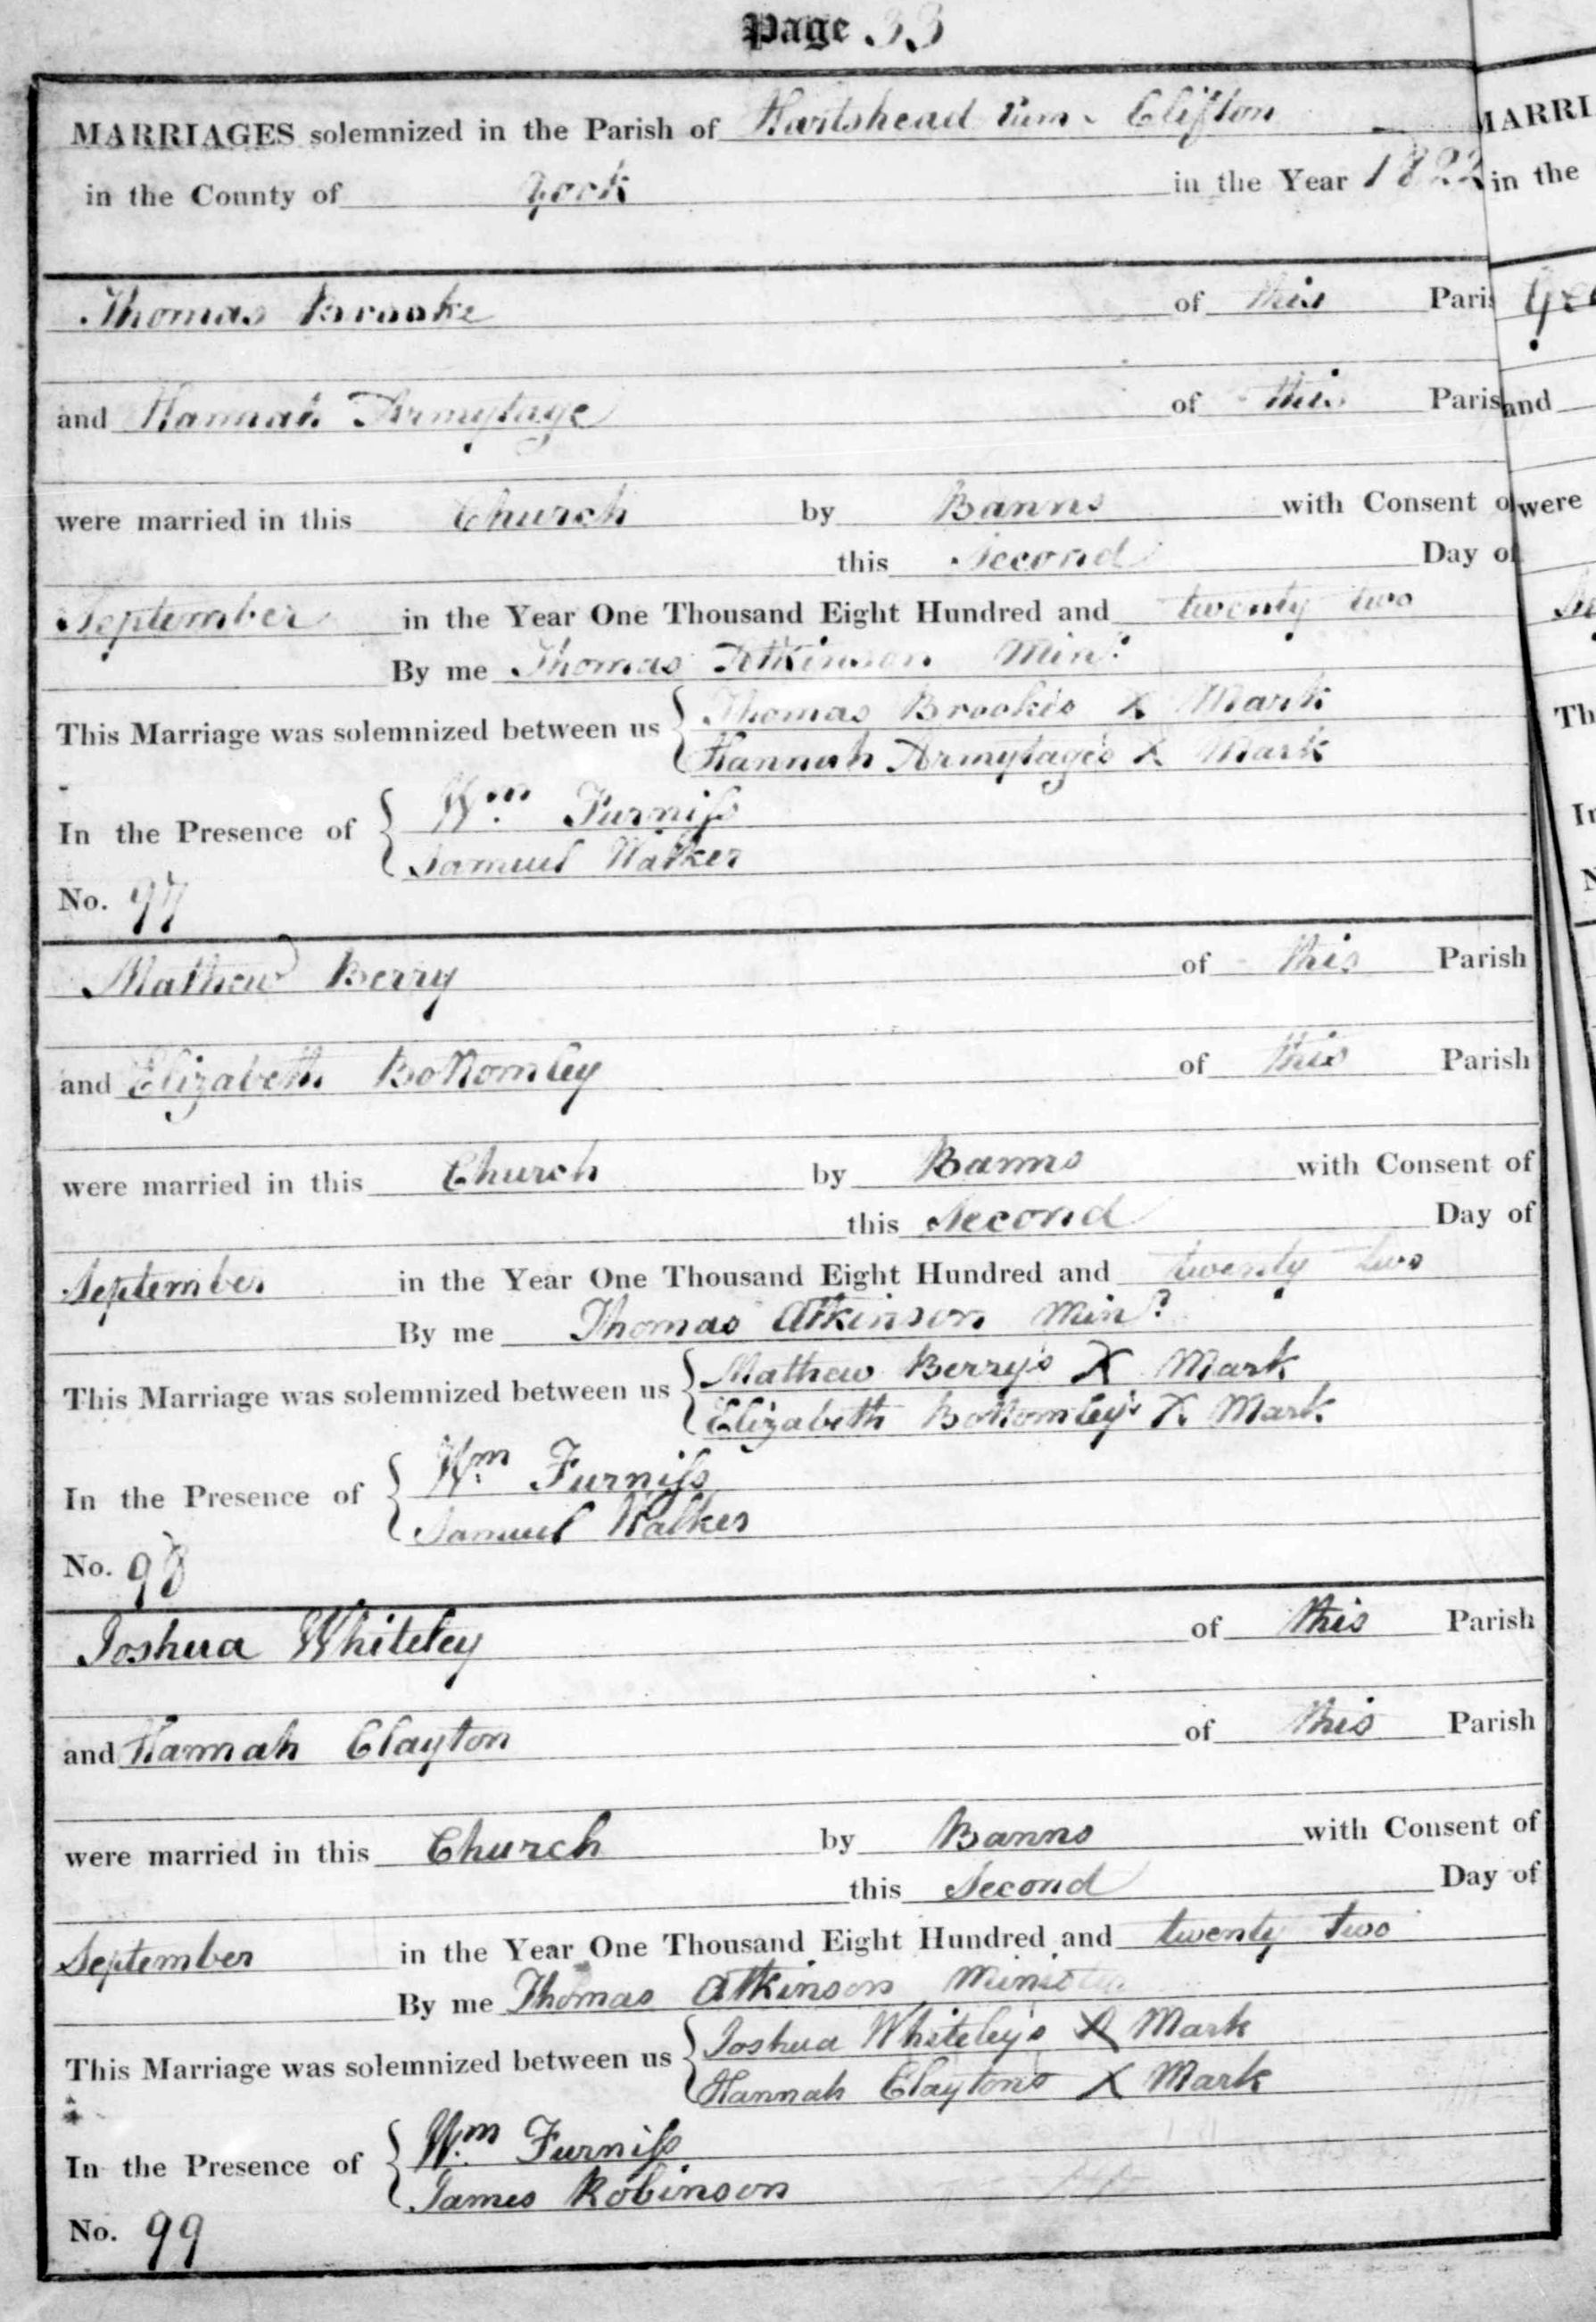 Page 33
MARRIAGES solemnized in the Parish of Hartshead cum Clifton
in the County of York in the Year 1822
Thomas Brooke of this Paris
and Hannah Armytage of this Paris
were married in this Church by Banns with Consent o
this Second Day of
September in the Year One Thousand Eight Hundred and twenty two
By me Thomas Atkinson Minr
This Marriage was solemnized between us { Thomas Brooke's X Mark
Hannah Armytage's X Mark
In the Presence of { Wm Furniſs
Samuel Walker
No. 97
Mathew Berry of this Parish
and Elizabeth Bottomley of this Parish
were married in this Church by Banns with Consent of
this Second Day of
September in the Year One Thousand Eight Hundred and twenty two
By me Thomas Atkinson Minr
This Marriage was solemnized between us { Mathew Berry's X Mark
Elizabeth Bottomley's X Mark
In the Presence of { Wm Furniſs
Samuel Walker
No. 98
Joshua Whiteley of this Parish
and Hannah Clayton of this Parish
were married in this Church by Banns with Consent of
this Second Day of
September in the Year One Thousand Eight Hundred and twenty two
By me Thomas Atkinson Minister
This Marriage was solemnized between us { Joshua Whiteley's X Mark
Hannah Clayton's X Mark
In the Presence of { Wm Furniſs
James Robinson
No. 99
MARRI
in the
and
were
Th
In
N